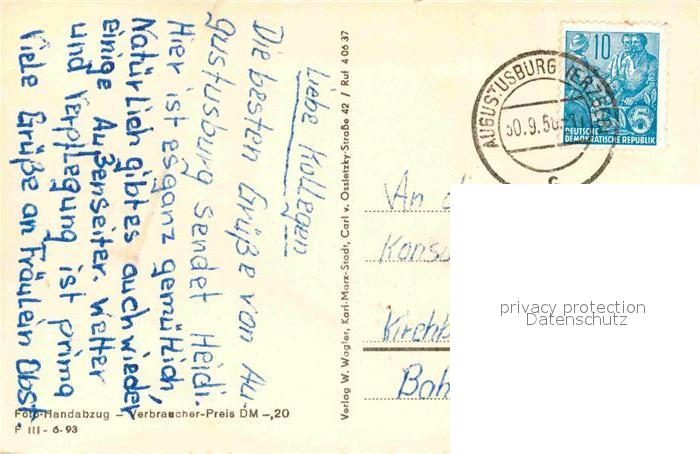 Liebe Kollegen
Die besten Grüße von Au-
gustusburg sendet Heidi.
Hier ist es ganz gemütlich,
Natürlich gibt es auch wieder
einige Außenseiter. Wetter
und Verpflegung ist prima
Viele Grüße an Fräulein Obst.
Foto-Handabzug – Verbraucher-Preis DM –,20
F III - 6-93
Verlag W. Wagler, Karl-Marx-Stadt, Carl v. Ossietzky-Straße 42 / Ruf 4 06 37
AUGUSTUSBURG (ERZGEB)
30.9.56
c
10
5
DEUTSCHE
DEMOKRATISCHE REPUBLIK
An d
Konsu
Kirchb
Boh
privacy protection
Datenschutz